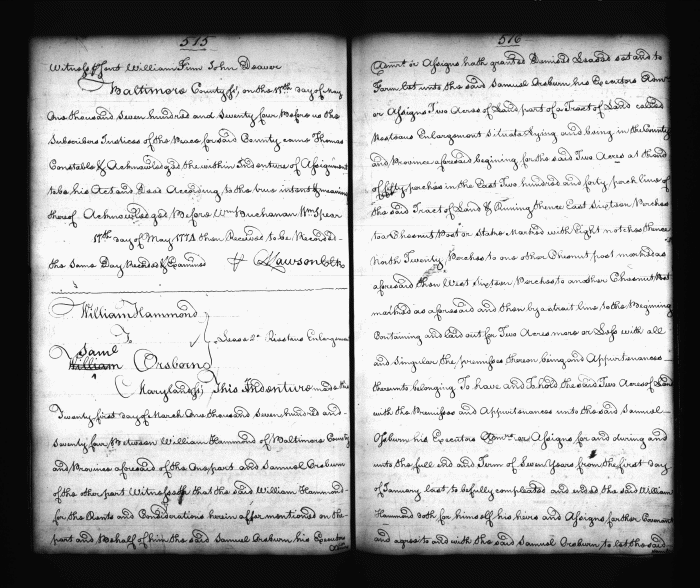 515
Witness Jent William Finn John Deaver
Baltimore County Sc. on the 17th day of May
One thousand Seven hundred and Seventy four Before us the
Subscribers Justices of the Peace for said County came Thomas
Constable & Acknowledged the within Indenture of Assignment
to be his Act and Deed According to the true intent & meaning
thereof Acknowledged Before Wm Buchanan Wm Spear
17th day of May 1774 then Received to be Recorded
the Same Day Recorded & Examined A Lawson Clk
William Hammond
To
Saml
William Orsborn
Lease 2a Nicolaus Enlargemt
Maryland Sc. This Indenture made this
Twenty first day of March One thousand Seven hundred and
Seventy four Between William Hammond of Baltimore County
and Province aforesaid of the One part and Samuel Orsburn
of the other part Witnesseth that the said William Hammond
for the Rents and Considerations herein after mentioned on the
part and Behalf of him the said Samuel Orsburn his Executors
516
Admrs or Assigns hath granted Demised Leased set and to
Farm let unto the said Samuel Orsburn his Executors Admrs
or Assigns Two Acres of Land part of a Tract of Land called
Enlargement Situate Lying and being in the County
and Province aforesaid begining for the said Two Acres at the end
of fifty perches in the East Two hundred and forty perch line of
the said Tract of Land & Runing thence East Sixteen Perches
to a Chesnut Post or Stake Marked with Eight notches thence
North Twenty Perches to one other Chesnut post marked as
aforesaid then West Sixteen Perches to another Chesnut Post
marked as aforesaid and then by a strait line to the Begining
Containing and laid out for Two Acres more or Less with all
and Singular the premisses thereon being and Appurtenances
thereunto belonging To have and To hold the said Two Acres of Land
with the Premisses and Appurtenances unto the said Samuel
Osburn his Executors Admrs or Assigns for and during and
unto the full end and Term of Seven Years from the first day
of January last to be fully compleated and ended the said William
Hammond doth for himself his heirs and Assigns farther Covenant
and agree to and with the said Samuel Orsburn to let the said